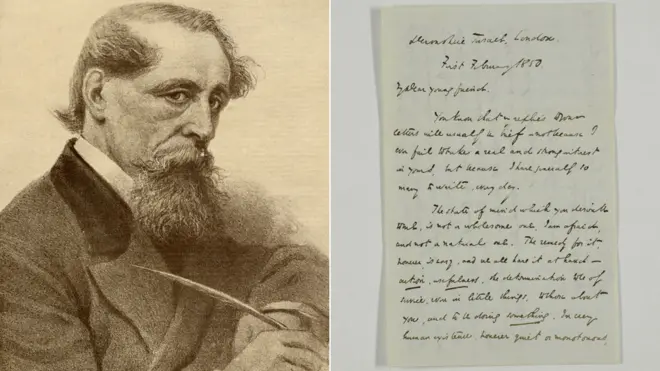 Devonshire Terrace, London.
First February 1850
My dear young friend.
You know that my replies to your
letters will usually be brief - not because I
ever fail to take a real and strong interest
in yours, but because I have myself so
many to write, every day.
The state of mind which you describe
to me, is not a wholesome one, I am afraid,
and not a natural one. The remedy for it
however is easy, and we all have it at hand -
action, usefulness, the determination to be of
service, even in little things, to those about
you, and to be doing something. In every
human existence, however quiet or monotonous